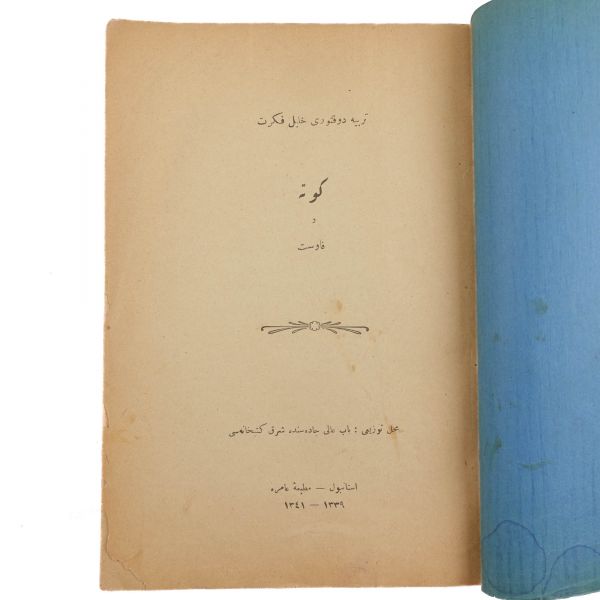 تربيه دوقتورى خليل فكرت
كوته
و
فاوست
محل توزيعى : باب عالى جاده‌سنده شرق كتبخانه‌سى
استانبول — مطبعهٔ عامره
١٣٣٩ — ١٣٤١